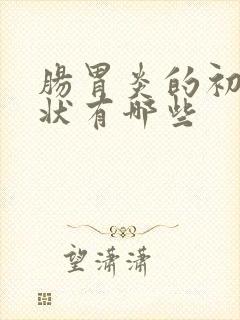 腸胃炎的初
状有哪些
望潇潇